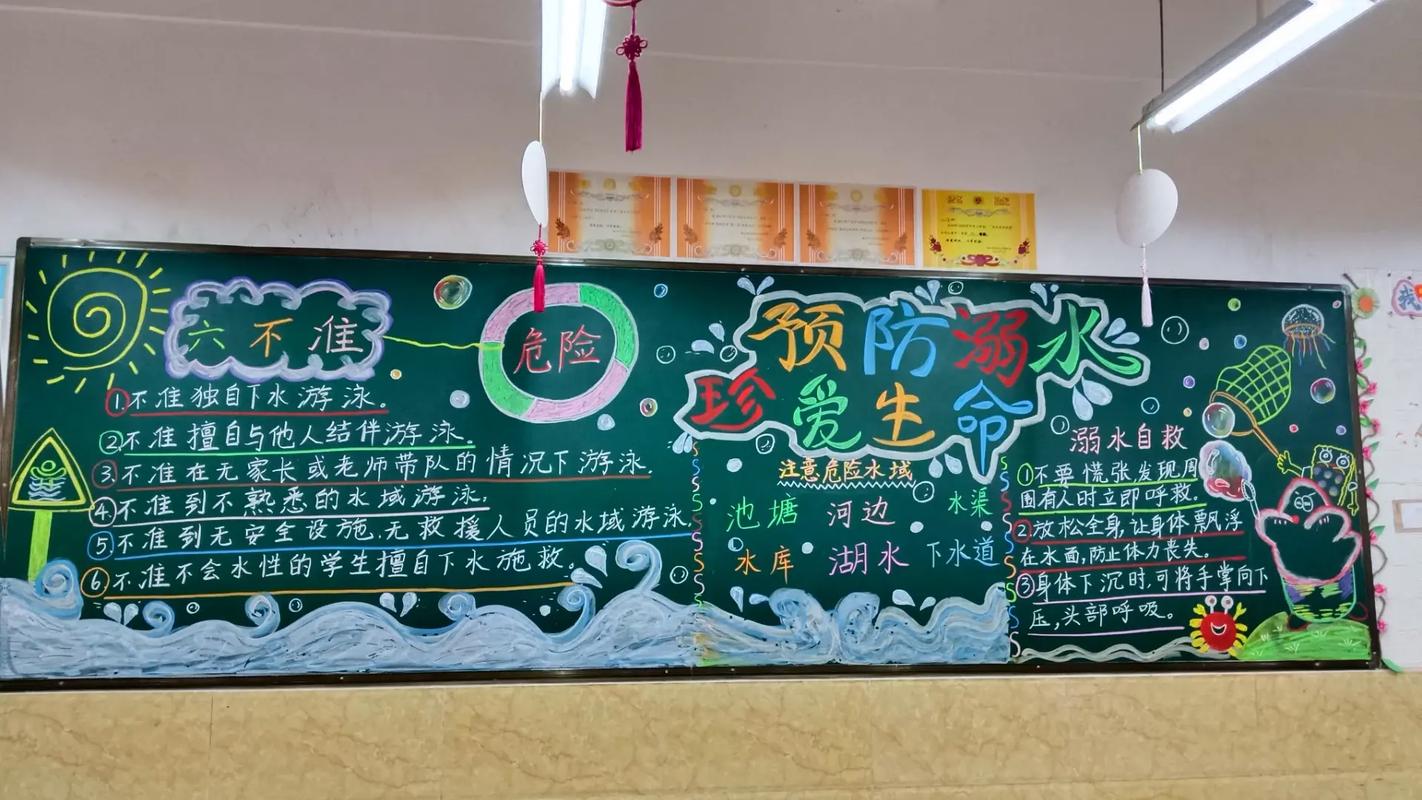 六不准
危险
①不准独自下水游泳。
②不准擅自与他人结伴游泳。
③不准在无家长或老师带队的情况下游泳.
④不准到不熟悉的水域游泳.
⑤不准到无安全设施.无救援人员的水域游泳.
⑥不准不会水性的学生擅自下水施救。
预防溺水
珍爱生命
注意危险水域
池塘 河边 水渠
水库 湖水 下水道
溺水自救
①不要慌张,发现周
围有人时立即呼救。
②放松全身,让身体飘浮
在水面,防止体力丧失。
③身体下沉时,可将手掌向下
压,头部呼吸。
我